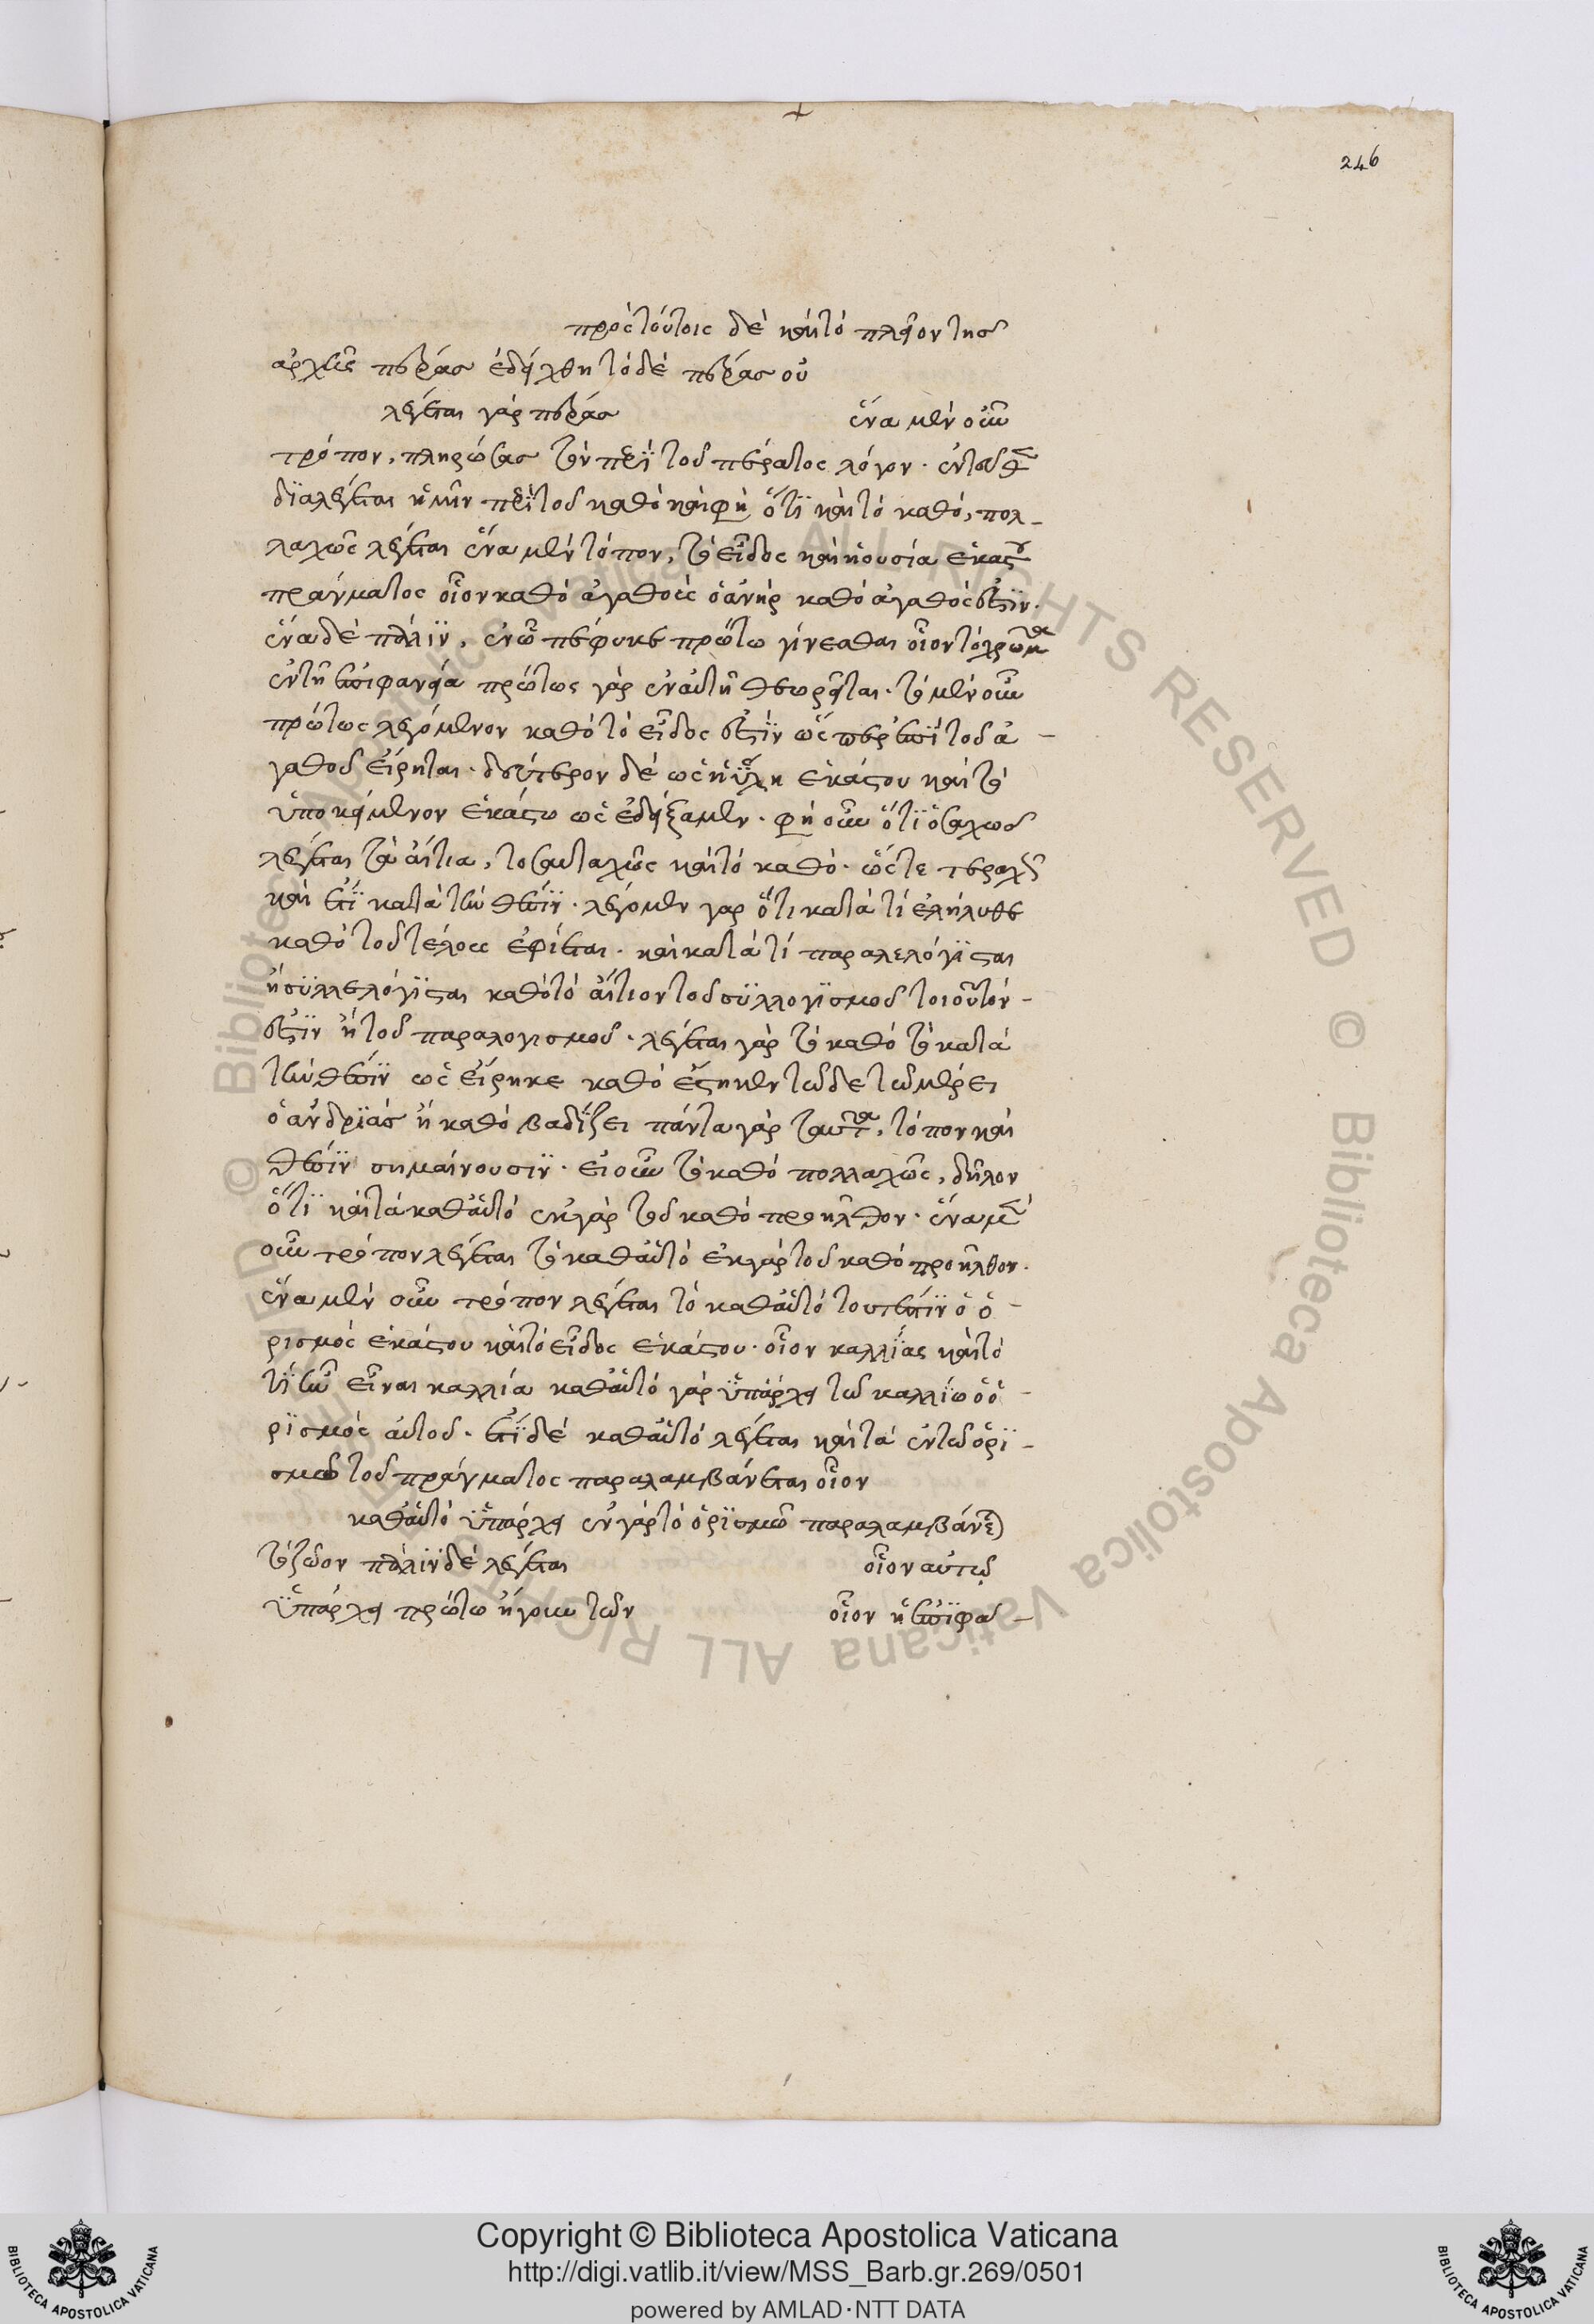 246
πρὸς τούτοις δὲ καὶ τὸ πλεῖον της
ἀρχῆς πέρας ἐδείχθη τὸ δὲ πέρας οὐ
λέγεται γὰρ πέρας ἕνα μὲν οὖν
τρόπον, πληρώσας τὸν περὶ τοῦ πέρατος λόγον. ἐνταῦθα
διαλέγεται ἡμῖν περὶ τοῦ καθὸ καὶ φη ὅτι καὶ τὸ καθό, πολ-
λαχῶς λέγεται ἕνα μὲν τόπον, τὸ εἶδος καὶ ἡ οὐσία ἑκάστου
πράγματος οἷον καθὸ ἀγαθὸς ὁ ἀνὴρ καθὸ ἀγαθός ἐστιν.
ἕνα δὲ πάλιν, ἐν ὧ πέφυκε πρώτω γίνεσθαι οἷον τὸ χρῶμα
ἐν τῆ ἐπιφανεία πρώτως γὰρ ἐν αὐτῆ θεωρεῖται. τὸ μὲν οὖν
πρώτως λεγόμενον καθὸ τὸ εἶδος ἐστὶν ὥσπερ ἐπὶ τοῦ ἀ-
γαθοῦ εἴρηται. δεύτερον δὲ ὡς ἡ ὕλη ἑκάστου καὶ τὸ
ὑποκείμενον ἑκάστω ὡς ἐδείξαμεν. φη οὖν ὅτι ὁσαχῶς
λέγεται τὰ αἴτια, τοσαυταχῶς καὶ τὸ καθὸ. ὥστε τετραχῶς
καὶ ἔτι κατὰ τὴν θέσιν. λέγομεν γαρ ὅτι κατὰ τί ἐλήλυθε
καθὸ τοῦ τέλους ἐφίεται. καὶ κατὰ τί παραλελόγισται
ἢ συλλελόγισται καθὸ τὸ αἴτιον τοῦ συλλογισμοῦ τοιοῦτόν-
ἐστιν ἢ τοῦ παραλογισμοῦ. λέγεται γὰρ τὸ καθὸ τὸ κατὰ
τὴν θέσιν ὡς εἴρηκε καθὸ ἕστηκεν τῶδε τῶ μέρει
ὁ ἀνδριὰς ἢ καθὸ βαδίζει πάντα γὰρ ταῦτα, τόπον καὶ
θέσιν σημαίνουσιν. εἰ οὖν τὸ καθὸ πολλαχῶς, δῆλον
ὅτι καὶ τὰ καθ' αὑτό ἐκ γὰρ τοῦ καθὸ προῆλθον. ἕνα μὲν
οὖν τρόπον λέγεται τὸ καθ' αὑτὸ ἐκ γὰρ τοῦ καθὸ προῆλθον.
ἕνα μὲν οὖν τρόπον λέγεται τὸ καθ' αὑτό τουτέστιν ὁ ὁ-
ρισμὸς ἑκάστου καὶ τὸ εἶδος ἑκάστου. οἷον καλλίας καὶ τὸ
τί ἦν εἶναι καλλία καθ' αὑτό γὰρ ὑπάρχει τῶ καλλίω ὁ ὁ-
ρισμὸς αὐτοῦ. ἔτι δὲ καθ' αὑτὸ λέγεται καὶ τὰ ἐν τῶ ὁρι-
σμῶ τοῦ πράγματος παραλαμβάνεται οἷον
καθ' αὑτὸ ὑπάρχει ἐν γὰρ τὸ ὁρισμῶ παραλαμβάνεται
τὸ ζῶον πάλιν δὲ λέγεται οἷον αὐτῶ
ὑπάρχει πρώτω ἤγουν τῶν οἷον ἡ ἐπιφα-
Copyright © Biblioteca Apostolica Vaticana
http://digi.vatlib.it/view/MSS_Barb.gr.269/0501
powered by AMLAD·NTT DATA